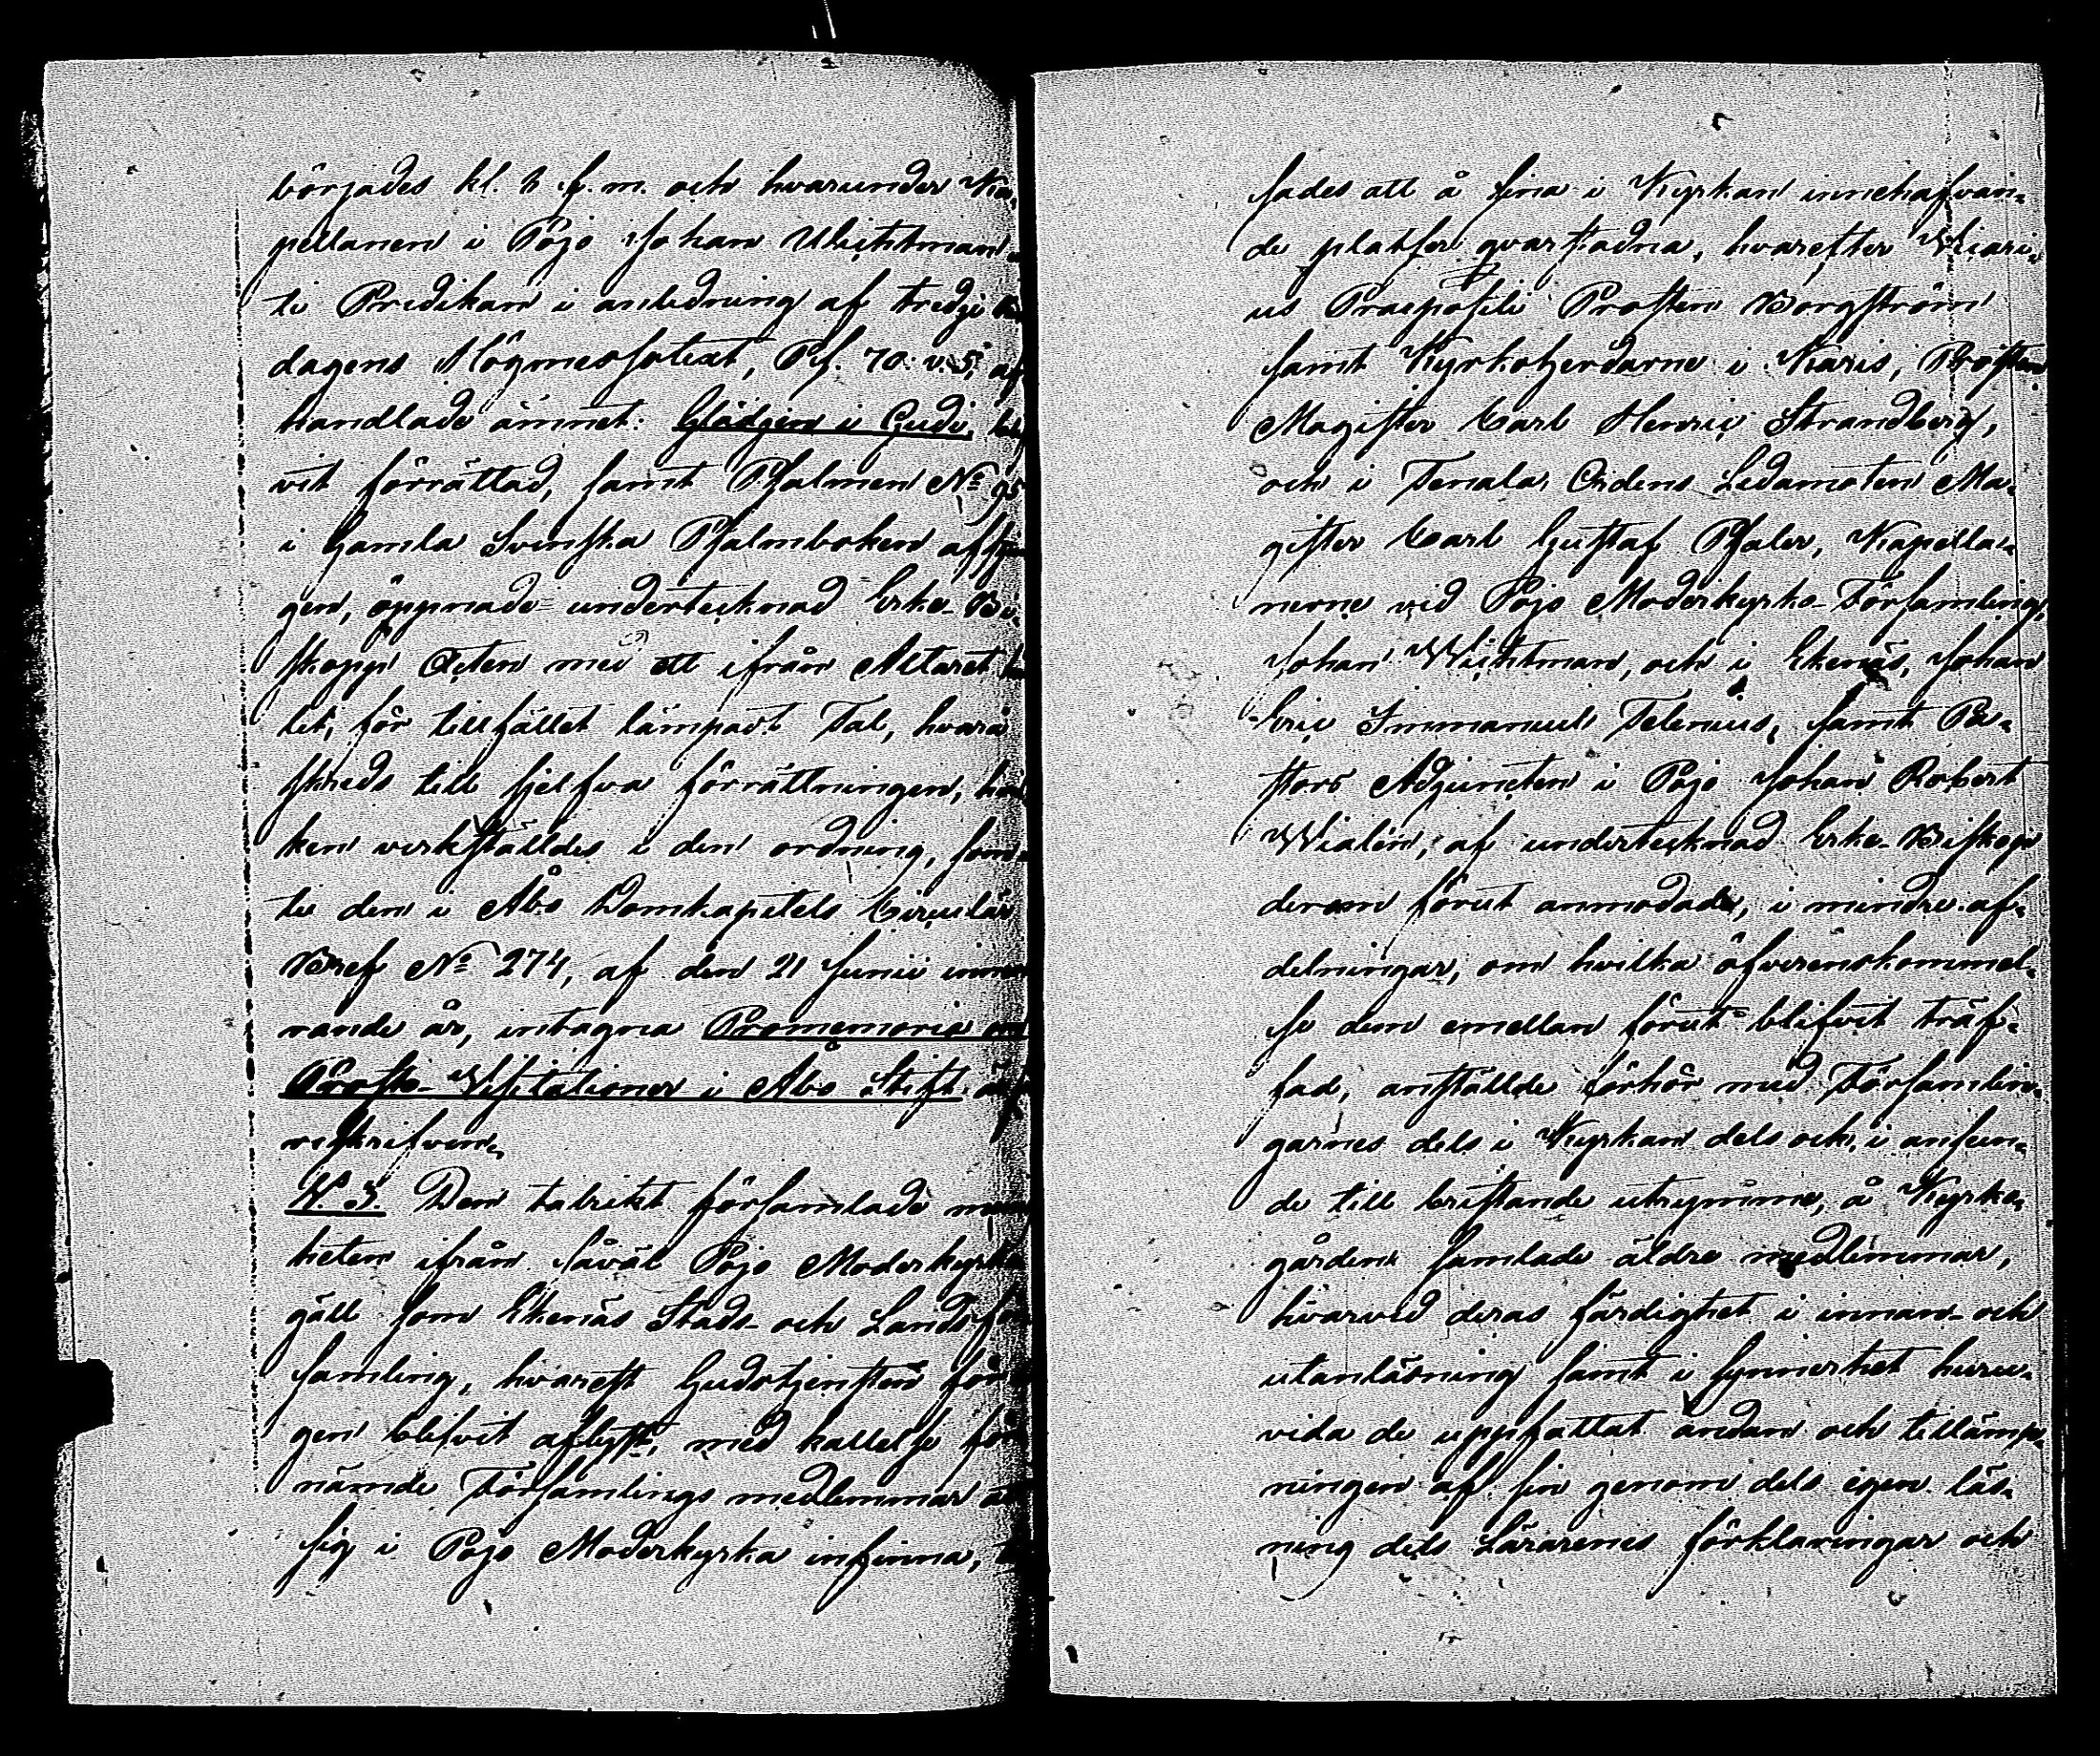 började kl. 8 f. m. och hvarunder Ka-
pellanen i Pojo Johan Wichtman
ti Predikan i anledning af tredje
dagens Högmessotext, Ps. 70: v. 5, af
handlade ämnet: Glädjen i Gudi, bli
vit förrättad, samt Psalmen No 95
i Gamla Svenska Psalmboken afsjun
gen, öppnade undertecknad Erke-Bi-
skopp Acten med ett ifrån Altaret
let, för tillfället lämpadt Tal, hvara
skreds till sjelfva förrättningen, hvil
ken verkställdes i den ordning, som
ti den i Åbo Domkapitels Circulär
Bref No 274, af den 21 Junii inne
rande år, intagna Promemoria om
Prosts-Visitationer i Åbo Stift är
reskrifven.
§. 3. Den talrikt församlade men
heten ifrån såväl Pojo Moderkyrko
gäll som Ekenäs Stads- och Landsför
samling, hvarest Gudstjensten för
gen blifvit aflyst, med kallelse för
nämde Församlings medlemmar at
sig i Pojo Moderkyrka infinna,
sades att å sina i Kyrkan innehafvan-
de platser qvarstadna, hvarefter Vicari-
us Praepositi Prosten Borgström
samt Kyrkoherdarne i Karis, Prosten
Magister Carl Henric Strandberg,
och i Tenala, Ordens Ledamoten Ma-
gister Carl Gustaf Pfaler, Kapella-
nerne vid Pojo Moderkyrko-Församling,
Johan Wichtman, och i Ekenäs, Johan
Eric Immanuel Telenius, samt Pa-
stors Adjuncten i Pojo Johan Robert
Wialén, af undertecknad Erke-Biskop
derom förut anmodade, i mindre af-
delningar, om hvilka öfverenskommel-
se dem emellan förut blifvit träf-
fad, anställde förhör med Församlin-
garnes dels i Kyrkan dels och, i anseen-
de till bristande utrymme, å Kyrko-
gården samlade äldre medlemmar,
hvarvid deras färdighet i innan- och
utanläsning samt i synnerhet huru-
vida de uppfattat andan och tillämp-
ningen af sin genom dels egen läs-
ning dels Lärarenes förklaringar och